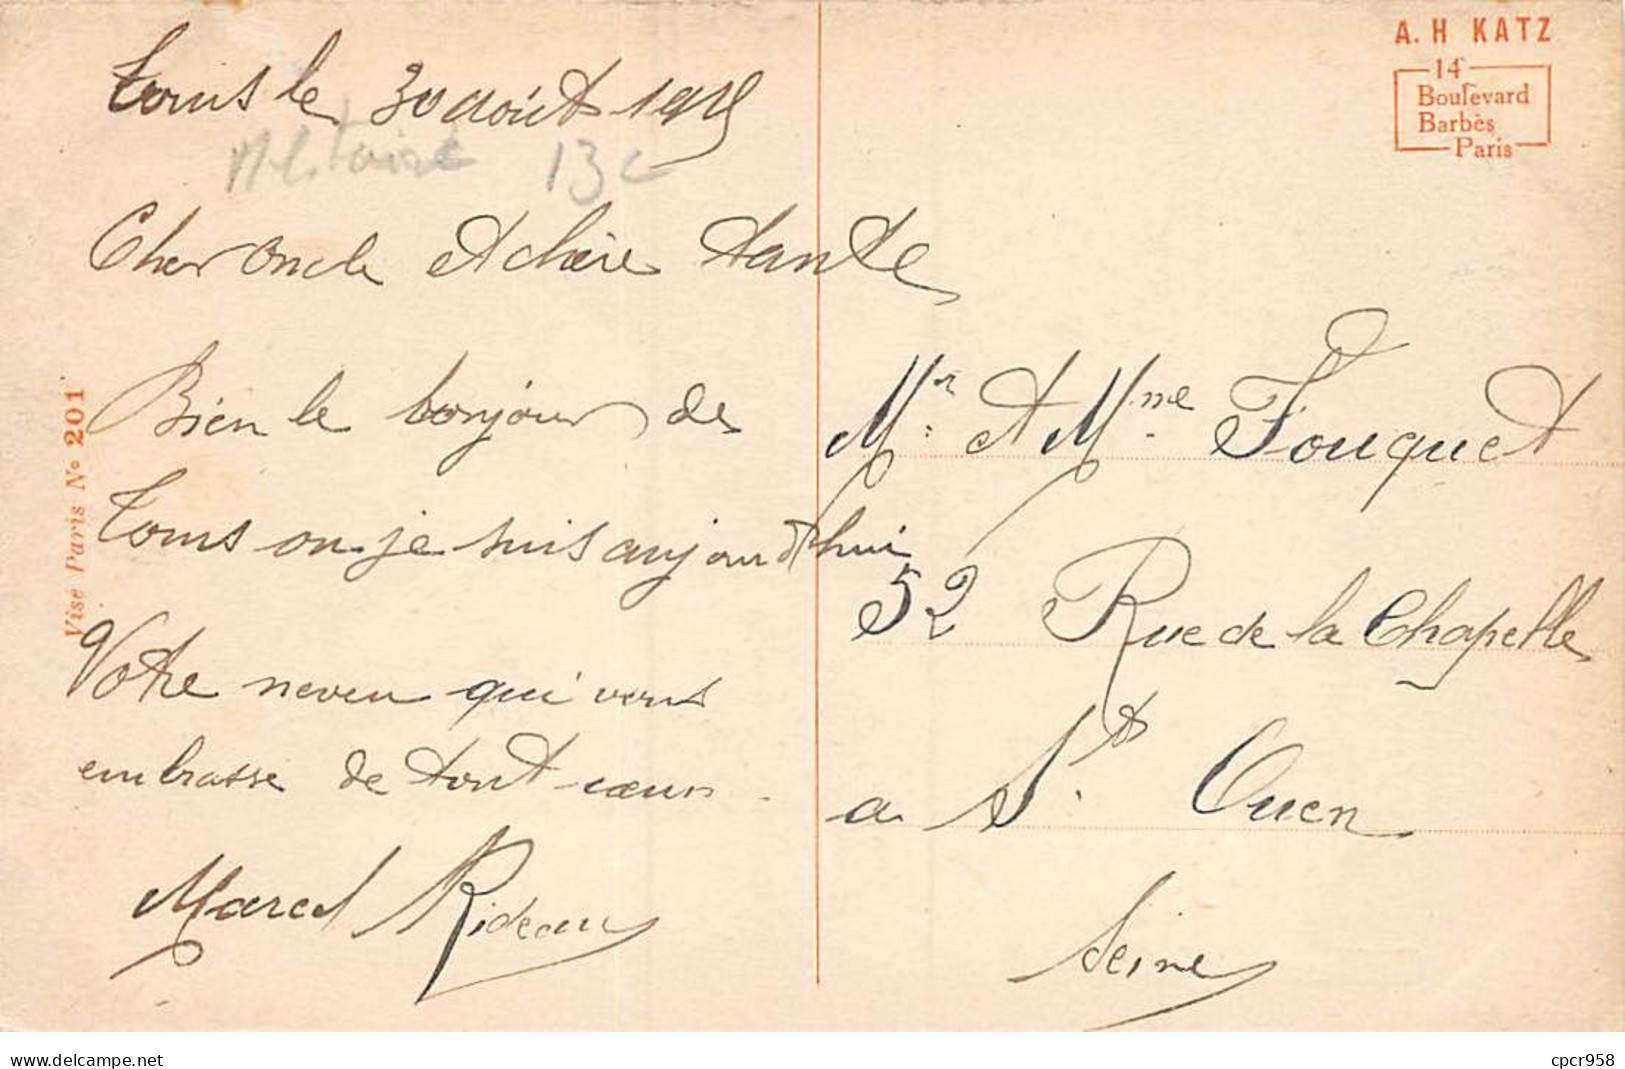 Tours le 30 août 1915
Militaire 13c
Cher Oncle et chère tante
Bien le bonjour de
Tours ou je suis aujourd'hui
Votre neveu qui vous
embrasse de tout cœur
Marcel Rideau
Visé Paris No 201
A. H KATZ
14
Boulevard
Barbès
Paris
Mr et Mme Fouquet
52 Rue de la Chapelle
a St Ouen
Seine
cpcr958